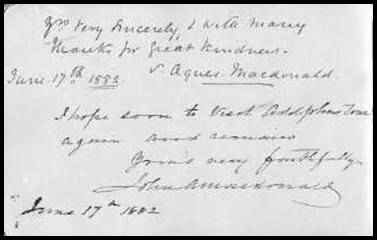 Yrs very sincerely, & with many
thanks for great kindness.
June 17th 1882 S. Agnes Macdonald.
I hope soon to visit Adolphustown
again and remain
Yours very faithfully
John A Macdonald
June 17th 1882